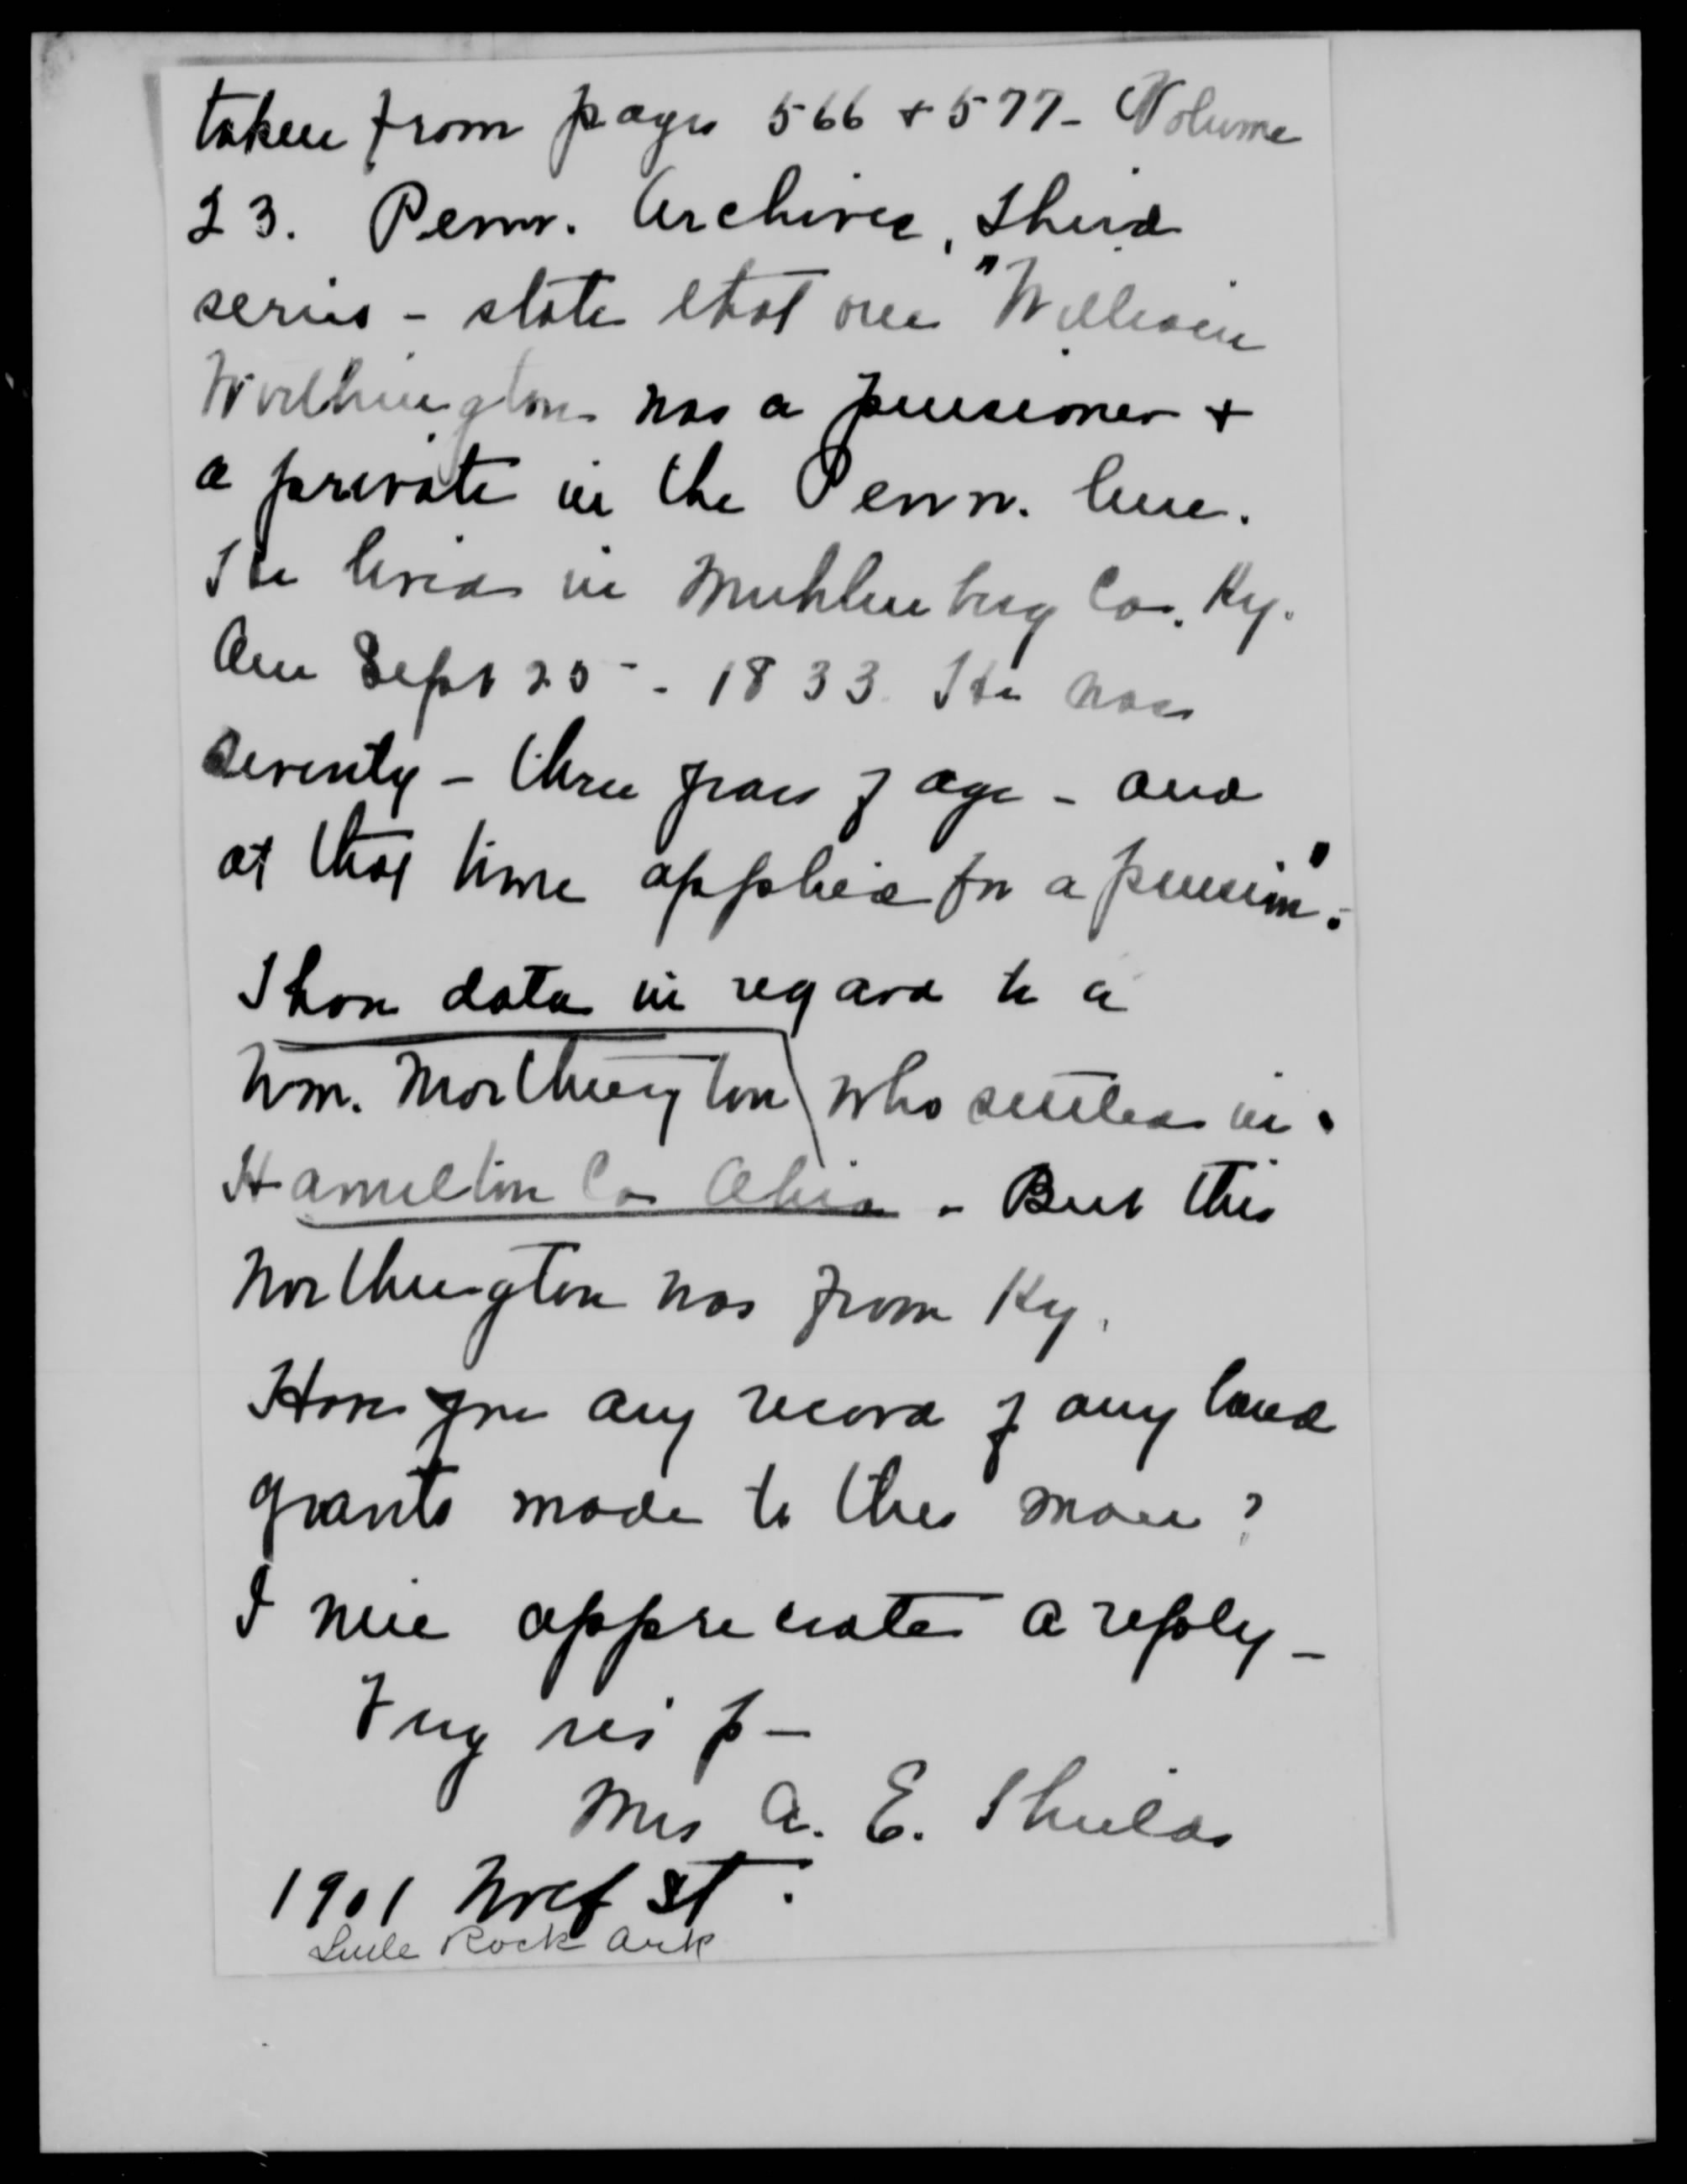 taken from pages 566 + 577 - Volume
23. Penn. Archives, Third
series - state that one "William
Worthington was a pensioner +
a private in the Penn. line.
He lived in Muhlenberg Co. Ky.
On Sept 25 - 1833 He was
seventy - three years of age - and
at that time applied for a pension".
I have data in regard to a
Wm. Worthington who settled in
Hamilton Co Ohio - But this
Worthington was from Ky.
Have you any record of any land
grants made to this man?
I will appreciate a reply -
Very res'p -
Mrs A. E. Shields
1901 Wolf St.
Little Rock Ark